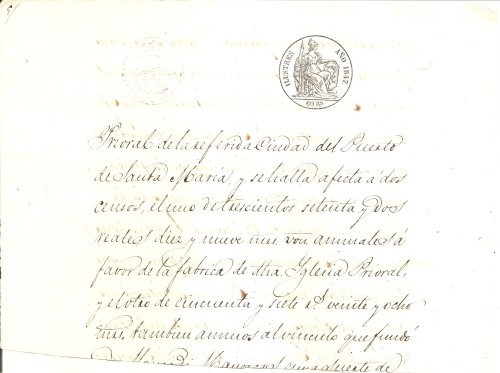 ILUSTRES AÑO 1847.
60 RS
Prioral de la referida Ciudad del Puerto
de Santa Maria, y se halla afecta á dos
censos, el uno de trescientos setenta y dos
reales diez y nueve mrs. von annuales á
favor de la fabrica de dha Iglesia Prioral,
y el otro de cincuenta y siete rs. veinte y ocho
mrs. tambien annuos al vinculo que fundó